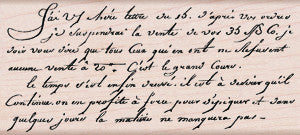 J'ai vu chère lettre du 15. d'après vos ordres
je suspendrai la vente de vos 35 B C. je
vois vous dire que tous ceux qui en ont ne refusent
aucune vente à 20 C'est le grand cours.
le temps s'est enfin sauvé. il est à savoir qu'il
Continue. on en profite à force pour et dans
quelques jours la matière ne manquera pas.